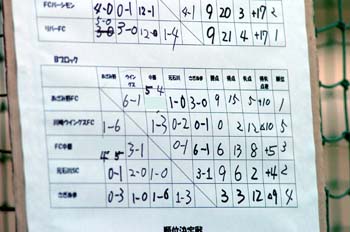 FCパーシモン 4-0 0-1 12-1 4-1 9 20 3 +17 2
5-0
リバーFC 3-0 3-0 12-0 1-4 9 21 4 +17 1
Bブロック
あざみ野 ウイングス 中原 元石川 さぎぬま 勝点 得点 失点 得失点差 順位
あざみ野FC 6-1 5-4 1-0 3-0 9 15 5 +10 1
川崎ウイングスFC 1-6 1-3 0-2 0-1 0 2 12 △10 5
FC中原 4-5 3-1 0-1 6-1 6 13 8 +5 3
元石川SC 0-1 2-0 1-0 3-1 9 6 2 +4 2
さぎぬま 0-3 1-0 1-6 1-3 3 3 12 △9 4
順位決定戦